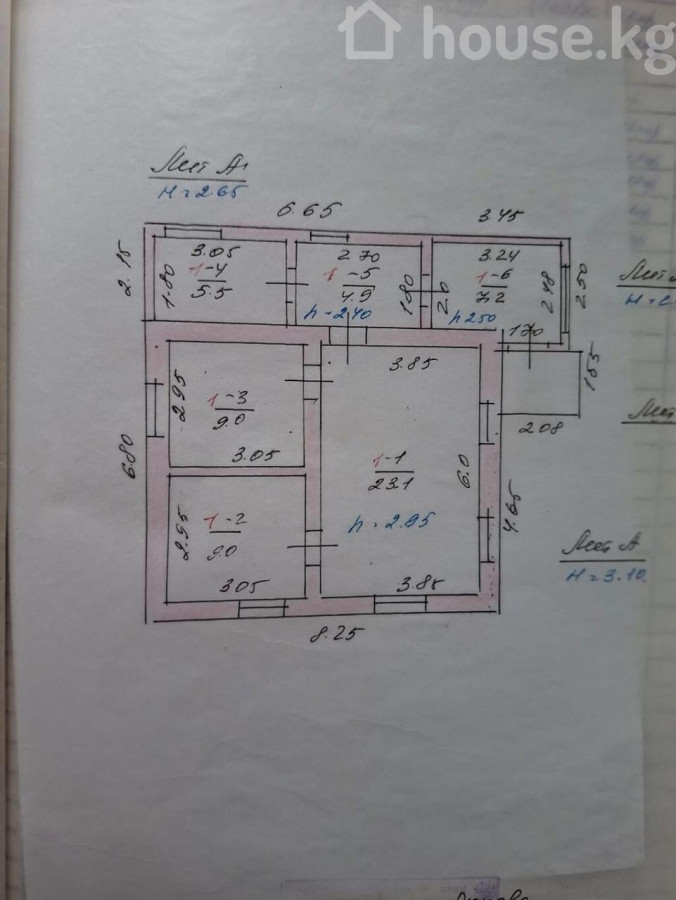 house.kg
Лит А1
H=2.65
6.65
3.45
2.15
3.05
1.80
1-4
5.5
2.70
1-5
4.9
1.80
h=2.40
3.24
1-6
7.2
2.0
2.48
2.50
h 250
1.70
Лит
1.55
2.08
3.85
2.95
1-3
9.0
3.05
6.80
1-1
23.1
6.0
h=2.95
4.65
Лит
2.95
1-2
9.0
3.05
3.85
8.25
Лит А
H=3.10